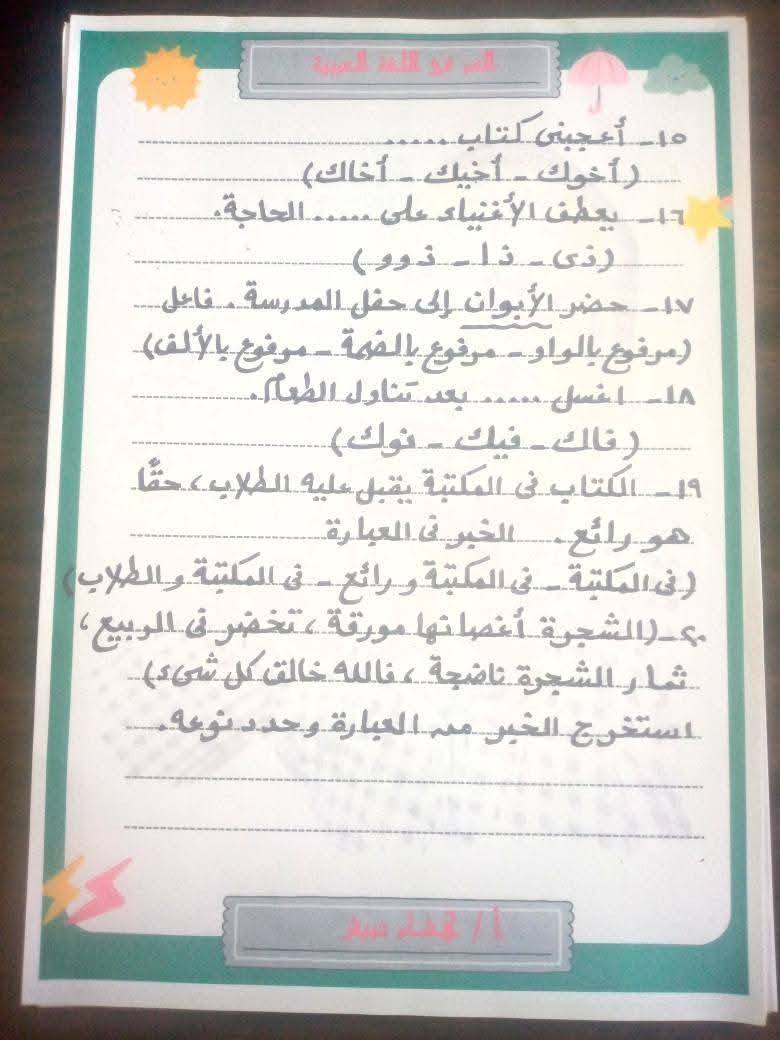 فى اللغة العربية
١٥- أعجبنى كتاب .....
(أخوك - أخيك - أخاك)
١٦- يعطف الأغنياء على ..... الحاجة.
(ذى - ذا - ذوو)
١٧- حضر الأبوان إلى حفل المدرسة . فاعل
(مرفوع بالواو - مرفوع بالضمة - مرفوع بالألف)
١٨- اغسل ..... بعد تناول الطعام.
(فاك - فيك - فوك)
١٩- الكتاب فى المكتبة يقبل عليه الطلاب، حقًّا
هو رائع . الخبر فى العبارة
(فى المكتبة - فى المكتبة و رائع - فى المكتبة و الطلاب)
٢٠- (الشجرة أغصانها مورقة ، تخضر فى الربيع ،
ثمار الشجرة ناضجة ، فالله خالق كل شىء)
استخرج الخبر من العبارة وحدد نوعه.
أ /